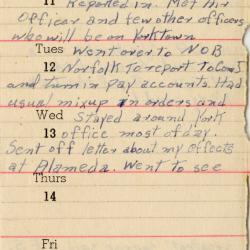 11 Reported in. Met Air
Officer and few other officers
who will be on Yorktown
Tues Went over to NOB
12 Norfolk to report to Com5
and turn in pay accounts. Had
usual mixup in orders and
Wed Stayed around York
13 office most of day.
Sent off letter about my effects
at Alameda. Went to see
Thurs
14
Fri